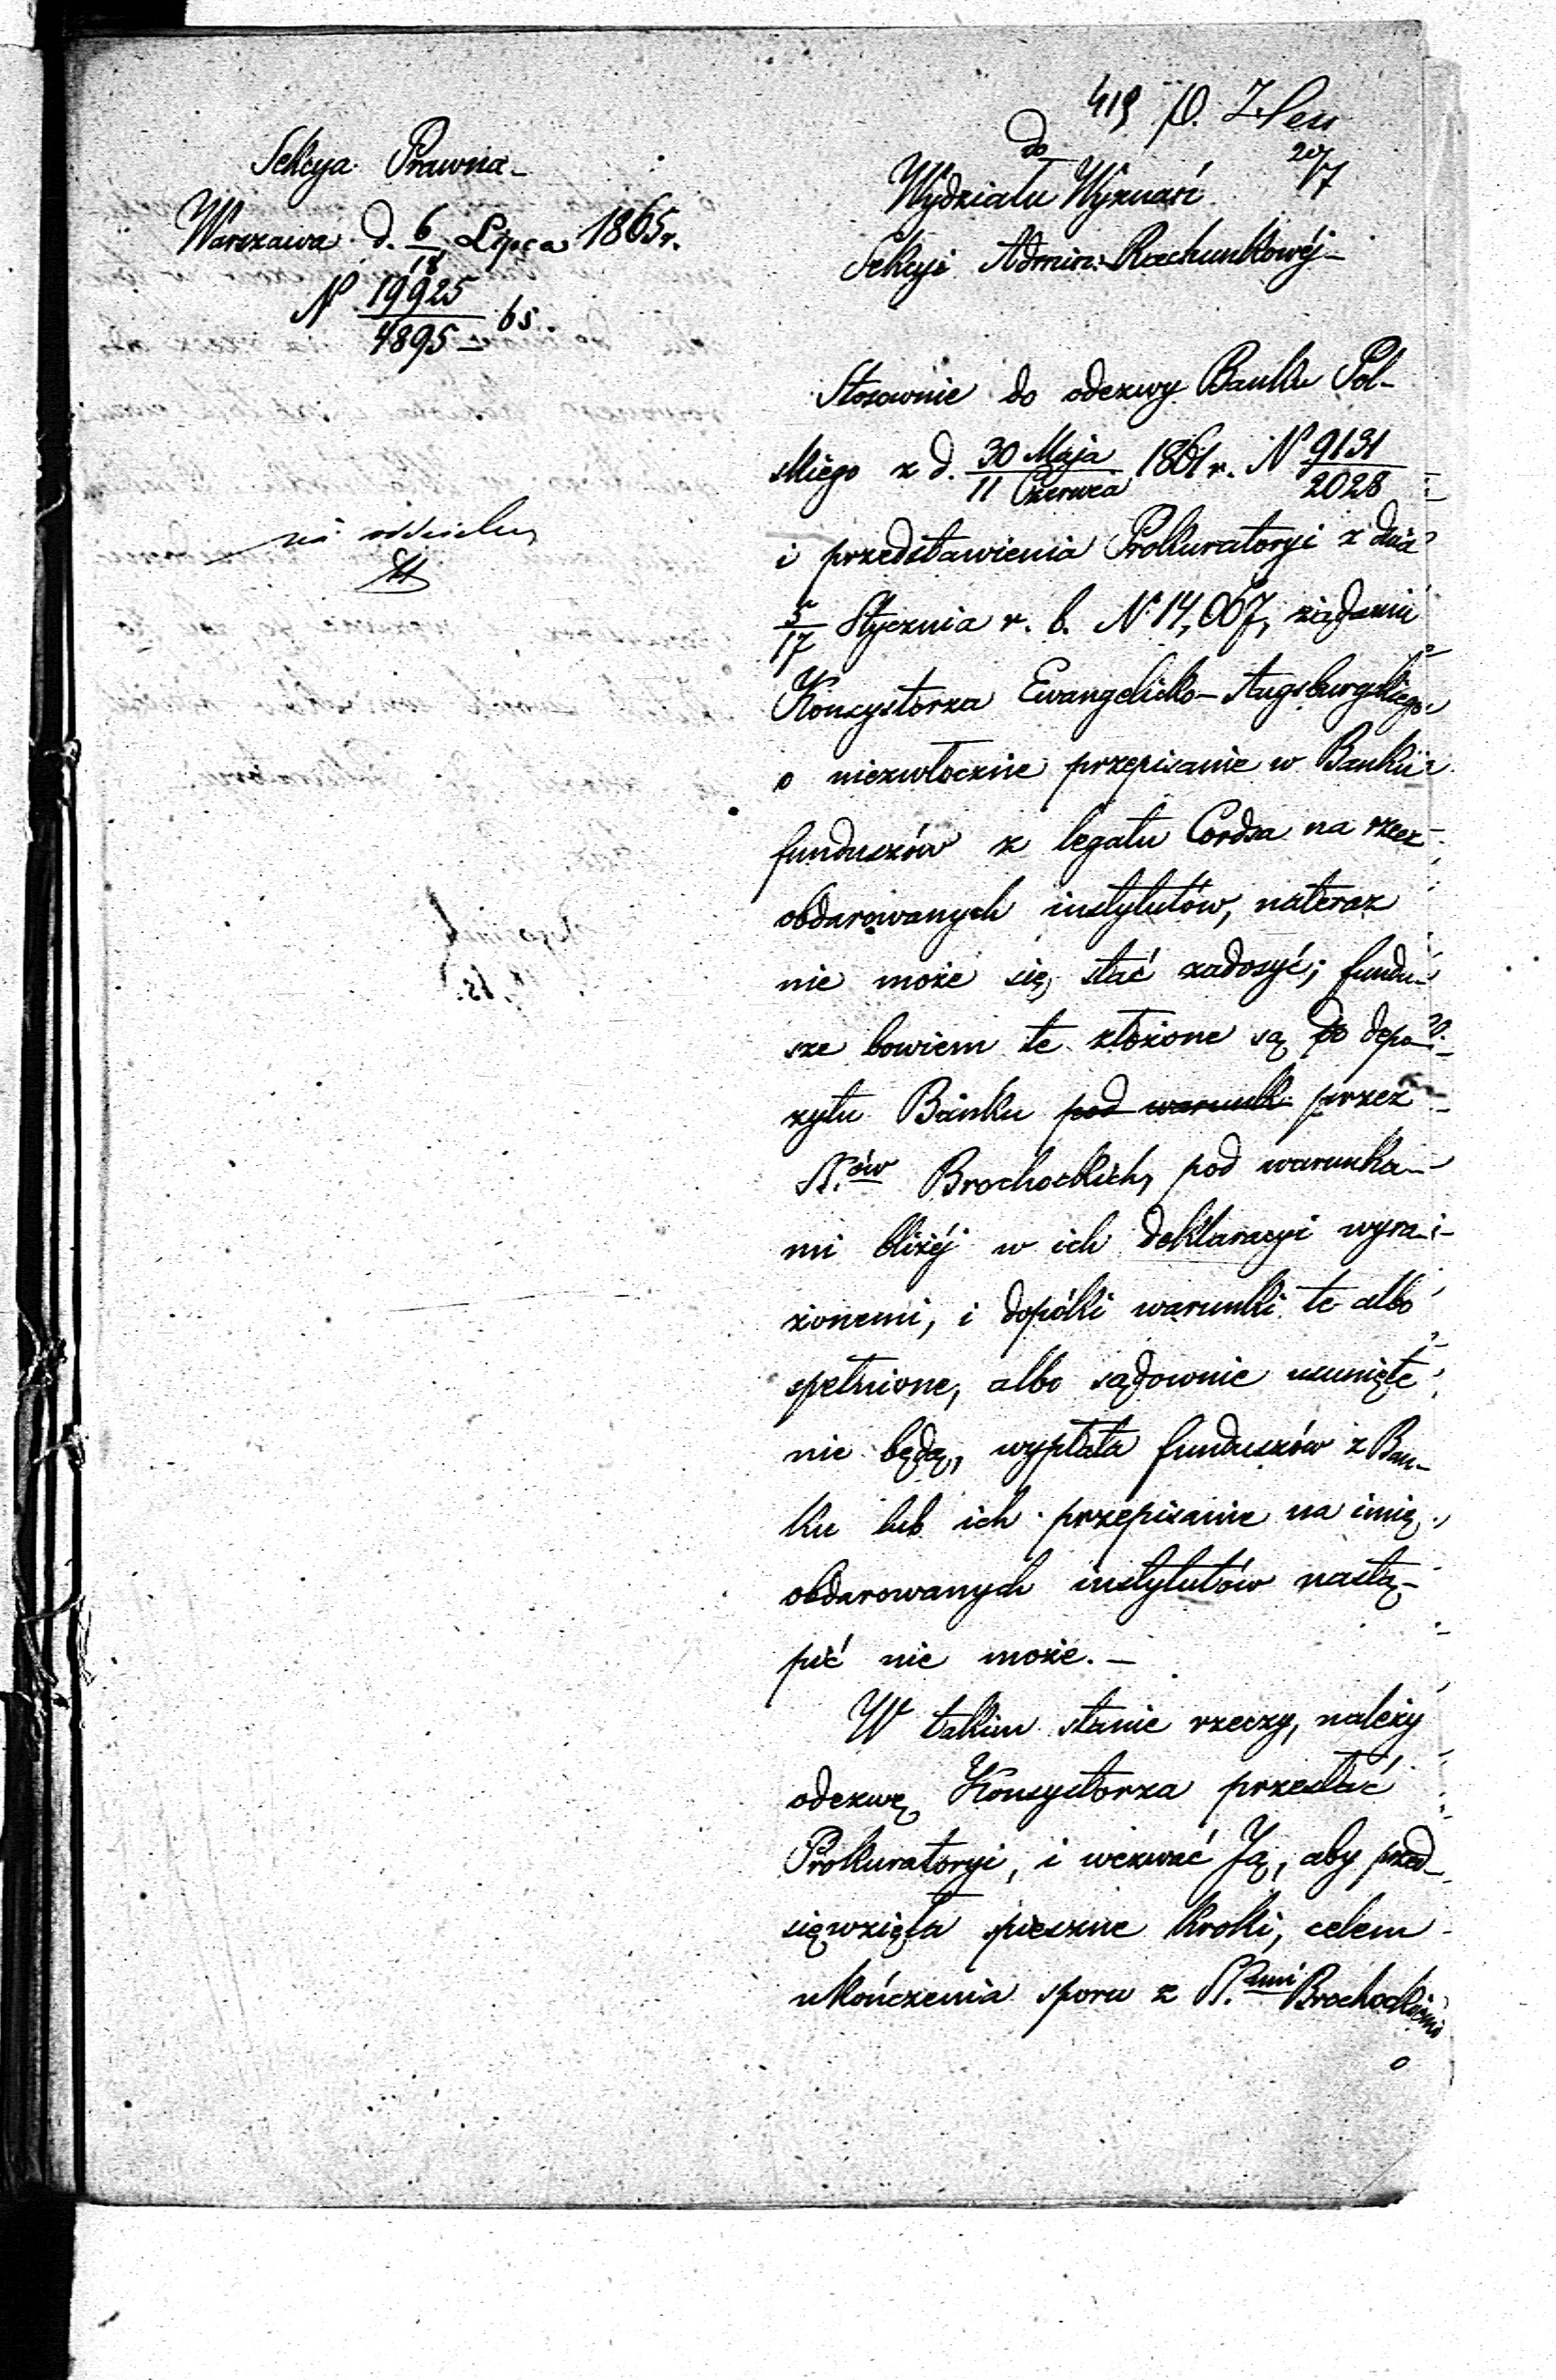 Sekcya Prawna
Warszawa d. 6/18 Lipca 1865 r.
N 19925/4895 – 65.
419 P.
20/7
do
Wydziału Wyznań
Sekcyi Admin: Rachunkowéj
Stosownie do odezwy Banku Pol-
skiego z d. 30 Maja/11 Czerwca 1861 r. N 9131/2028
i przedstawienia Prokuratoryi z dnia
5/17 Stycznia r. b. N. 14,067, żądaniu
Konsystorza Ewangelicko-Augsburgskiego
o niezwłoczne przepisanie w Banku
funduszów z legatu Cordsa na rzecz
obdarowanych instytutów, nateraz
nie może się stać zadosyć; fundu-
sze bowiem te złożone są do depo-
zytu Banku pod warunk przez
SS.ów Brochockich, pod warunka-
mi bliżéj w ich deklaracyi wyra-
żonemi, i dopóki warunki te albo
spełnione, albo sądownie usunięte
nie będą, wypłata funduszów z Ban-
ku lub ich przepisanie na imię
obdarowanych instytutów nastą-
pić nie może. –
W takim stanie rzeczy, należy
odezwę Konsystorza przesłać
Prokuratoryi, i wezwać Ją, aby przed-
sięwzięła spieszne kroki, celem
ukończenia sporu z SS.ami Brochockiemi
o